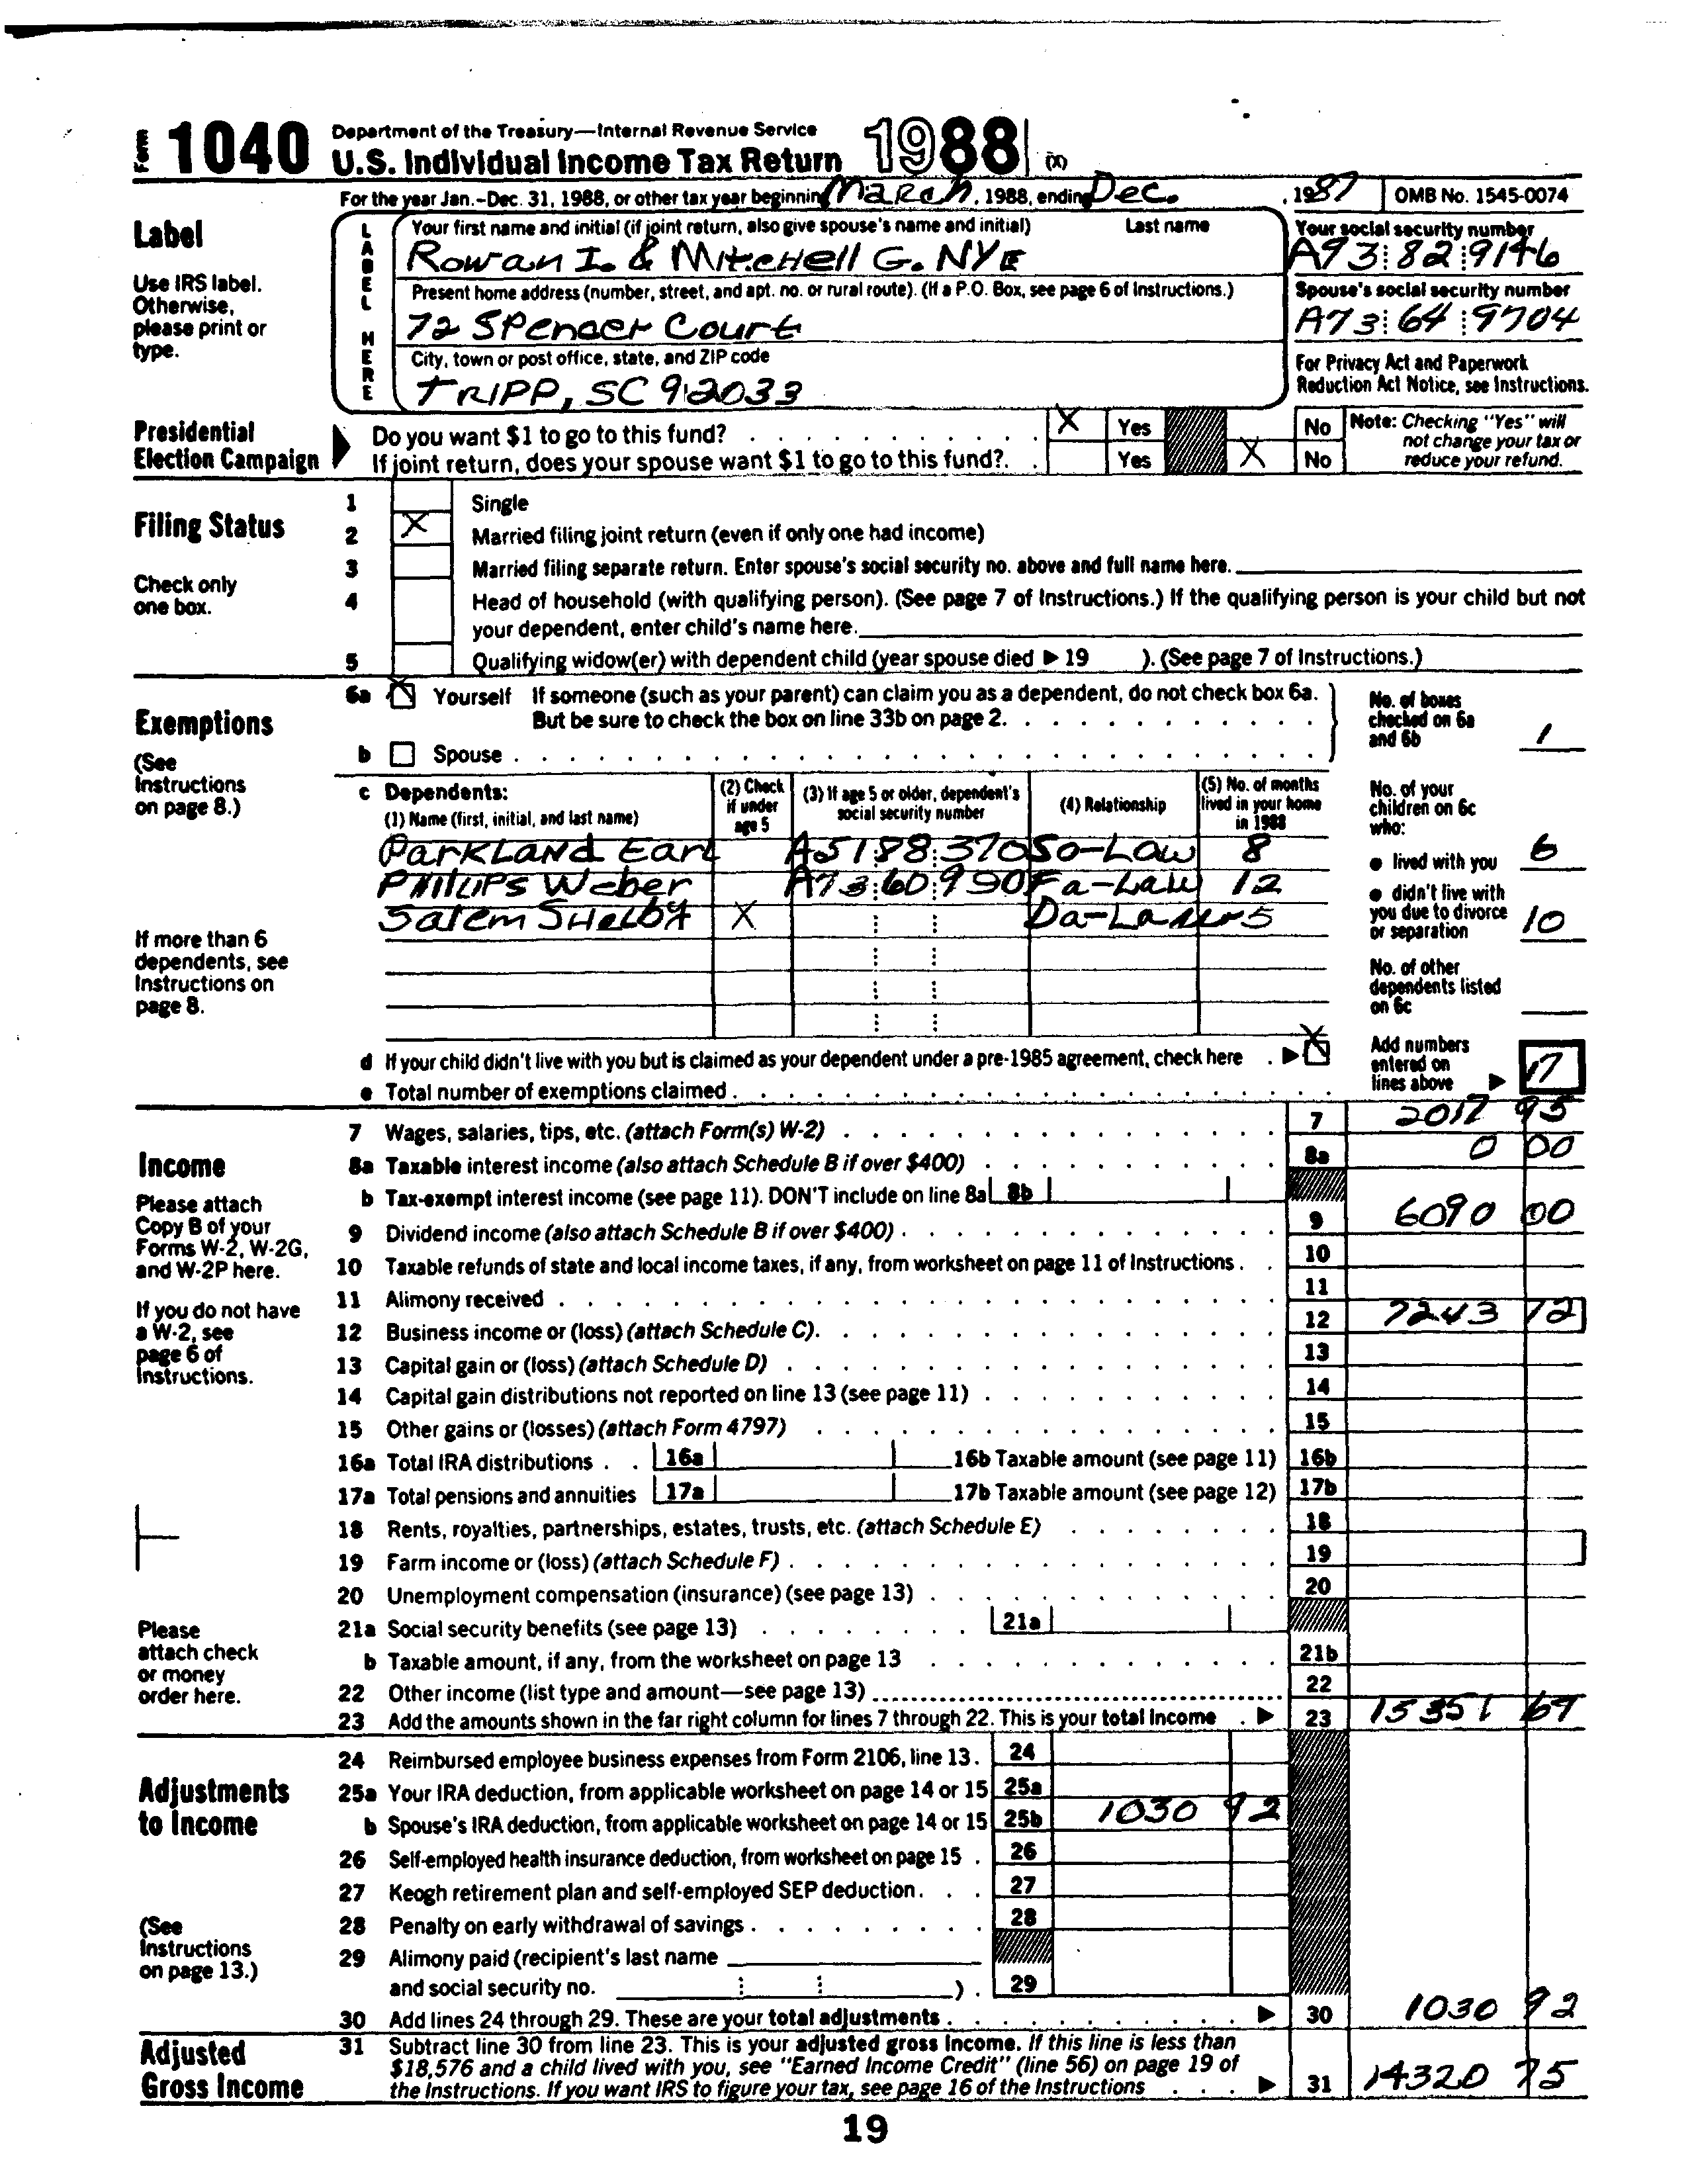 Form 1040 Department of the Treasury—Internal Revenue Service
U.S. Individual Income Tax Return 1988 (X)
For the year Jan.-Dec. 31, 1988, or other tax year beginning March, 1988, ending Dec. , 1987 OMB No. 1545-0074
Label
Use IRS label. Otherwise, please print or type.
LABEL HERE
Your first name and initial (if joint return, also give spouse's name and initial) Last name
Rowan I. & Mitchell G. NYE
Your social security number
A73 82 9146
Present home address (number, street, and apt. no. or rural route). (If a P.O. Box, see page 6 of Instructions.)
72 Spencer Court
Spouse's social security number
A73 64 9704
City, town or post office, state, and ZIP code
TRIPP, SC 92033
For Privacy Act and Paperwork Reduction Act Notice, see Instructions.
Presidential Election Campaign
Do you want $1 to go to this fund? X Yes No
If joint return, does your spouse want $1 to go to this fund? Yes X No
Note: Checking "Yes" will not change your tax or reduce your refund.
Filing Status
Check only one box.
1 Single
2 X Married filing joint return (even if only one had income)
3 Married filing separate return. Enter spouse's social security no. above and full name here.
4 Head of household (with qualifying person). (See page 7 of Instructions.) If the qualifying person is your child but not
your dependent, enter child's name here.
5 Qualifying widow(er) with dependent child (year spouse died ▶ 19 ). (See page 7 of Instructions.)
Exemptions
(See Instructions on page 8.)
6a X Yourself If someone (such as your parent) can claim you as a dependent, do not check box 6a.
But be sure to check the box on line 33b on page 2.
b Spouse
No. of boxes checked on 6a and 6b 1
c Dependents:
(1) Name (first, initial, and last name) (2) Check if under age 5 (3) If age 5 or older, dependent's social security number (4) Relationship (5) No. of months lived in your home in 1988
Parkland Earl A51 88 370 So-Law 8
Philips Weber A73 60 990 Fa-Law 12
Salem Shelby X 5
If more than 6 dependents, see Instructions on page 8.
No. of your children on 6c who:
● lived with you 6
● didn't live with you due to divorce or separation 10
No. of other dependents listed on 6c
d If your child didn't live with you but is claimed as your dependent under a pre-1985 agreement, check here ▶ X
e Total number of exemptions claimed
Add numbers entered on lines above ▶ 17
Income
Please attach Copy B of your Forms W-2, W-2G, and W-2P here.
If you do not have a W-2, see page 6 of Instructions.
7 Wages, salaries, tips, etc. (attach Form(s) W-2) 7 2017 95
8a Taxable interest income (also attach Schedule B if over $400) 8a 0 00
b Tax-exempt interest income (see page 11). DON'T include on line 8a 8b
9 Dividend income (also attach Schedule B if over $400) 9 6090 00
10 Taxable refunds of state and local income taxes, if any, from worksheet on page 11 of Instructions 10
11 Alimony received 11
12 Business income or (loss) (attach Schedule C) 12 7243 72
13 Capital gain or (loss) (attach Schedule D) 13
14 Capital gain distributions not reported on line 13 (see page 11) 14
15 Other gains or (losses) (attach Form 4797) 15
16a Total IRA distributions 16a 16b Taxable amount (see page 11) 16b
17a Total pensions and annuities 17a 17b Taxable amount (see page 12) 17b
18 Rents, royalties, partnerships, estates, trusts, etc. (attach Schedule E) 18
19 Farm income or (loss) (attach Schedule F) 19
20 Unemployment compensation (insurance) (see page 13) 20
21a Social security benefits (see page 13) 21a
b Taxable amount, if any, from the worksheet on page 13 21b
Please attach check or money order here.
22 Other income (list type and amount—see page 13) 22
23 Add the amounts shown in the far right column for lines 7 through 22. This is your total income ▶ 23 15351 67
Adjustments to Income
(See Instructions on page 13.)
24 Reimbursed employee business expenses from Form 2106, line 13. 24
25a Your IRA deduction, from applicable worksheet on page 14 or 15 25a
b Spouse's IRA deduction, from applicable worksheet on page 14 or 15 25b 1030 92
26 Self-employed health insurance deduction, from worksheet on page 15 26
27 Keogh retirement plan and self-employed SEP deduction 27
28 Penalty on early withdrawal of savings 28
29 Alimony paid (recipient's last name
and social security no. ) 29
30 Add lines 24 through 29. These are your total adjustments ▶ 30 1030 92
Adjusted Gross Income
31 Subtract line 30 from line 23. This is your adjusted gross income. If this line is less than
$18,576 and a child lived with you, see "Earned Income Credit" (line 56) on page 19 of
the Instructions. If you want IRS to figure your tax, see page 16 of the Instructions ▶ 31 14320 75
19